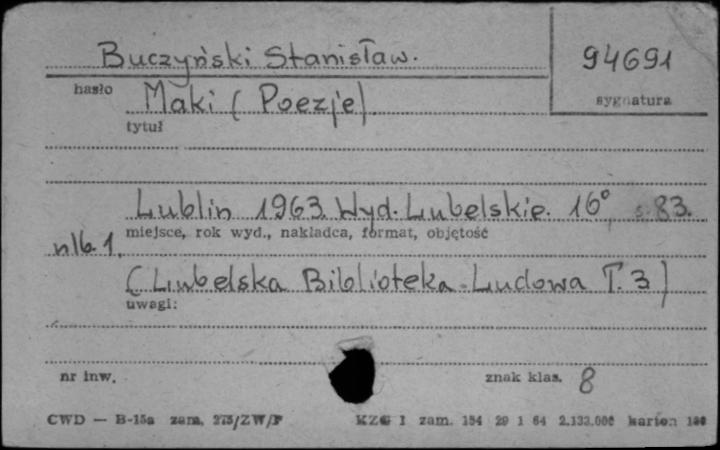 Buczyński Stanisław.
94691
hasło
sygnatura
Maki (Poezje)
tytuł
Lublin 1963. Wyd. Lubelskie. 16°, s. 83.
miejsce, rok wyd., nakładca, format, objętość
nlb. 1.
(Lubelska Biblioteka Ludowa T. 3)
uwagi:
nr inw.
znak klas. 8
CWD — B-15a zam. 275/ZW/F
KZG 1 zam. 154 29 1 64 2.133.000 karton